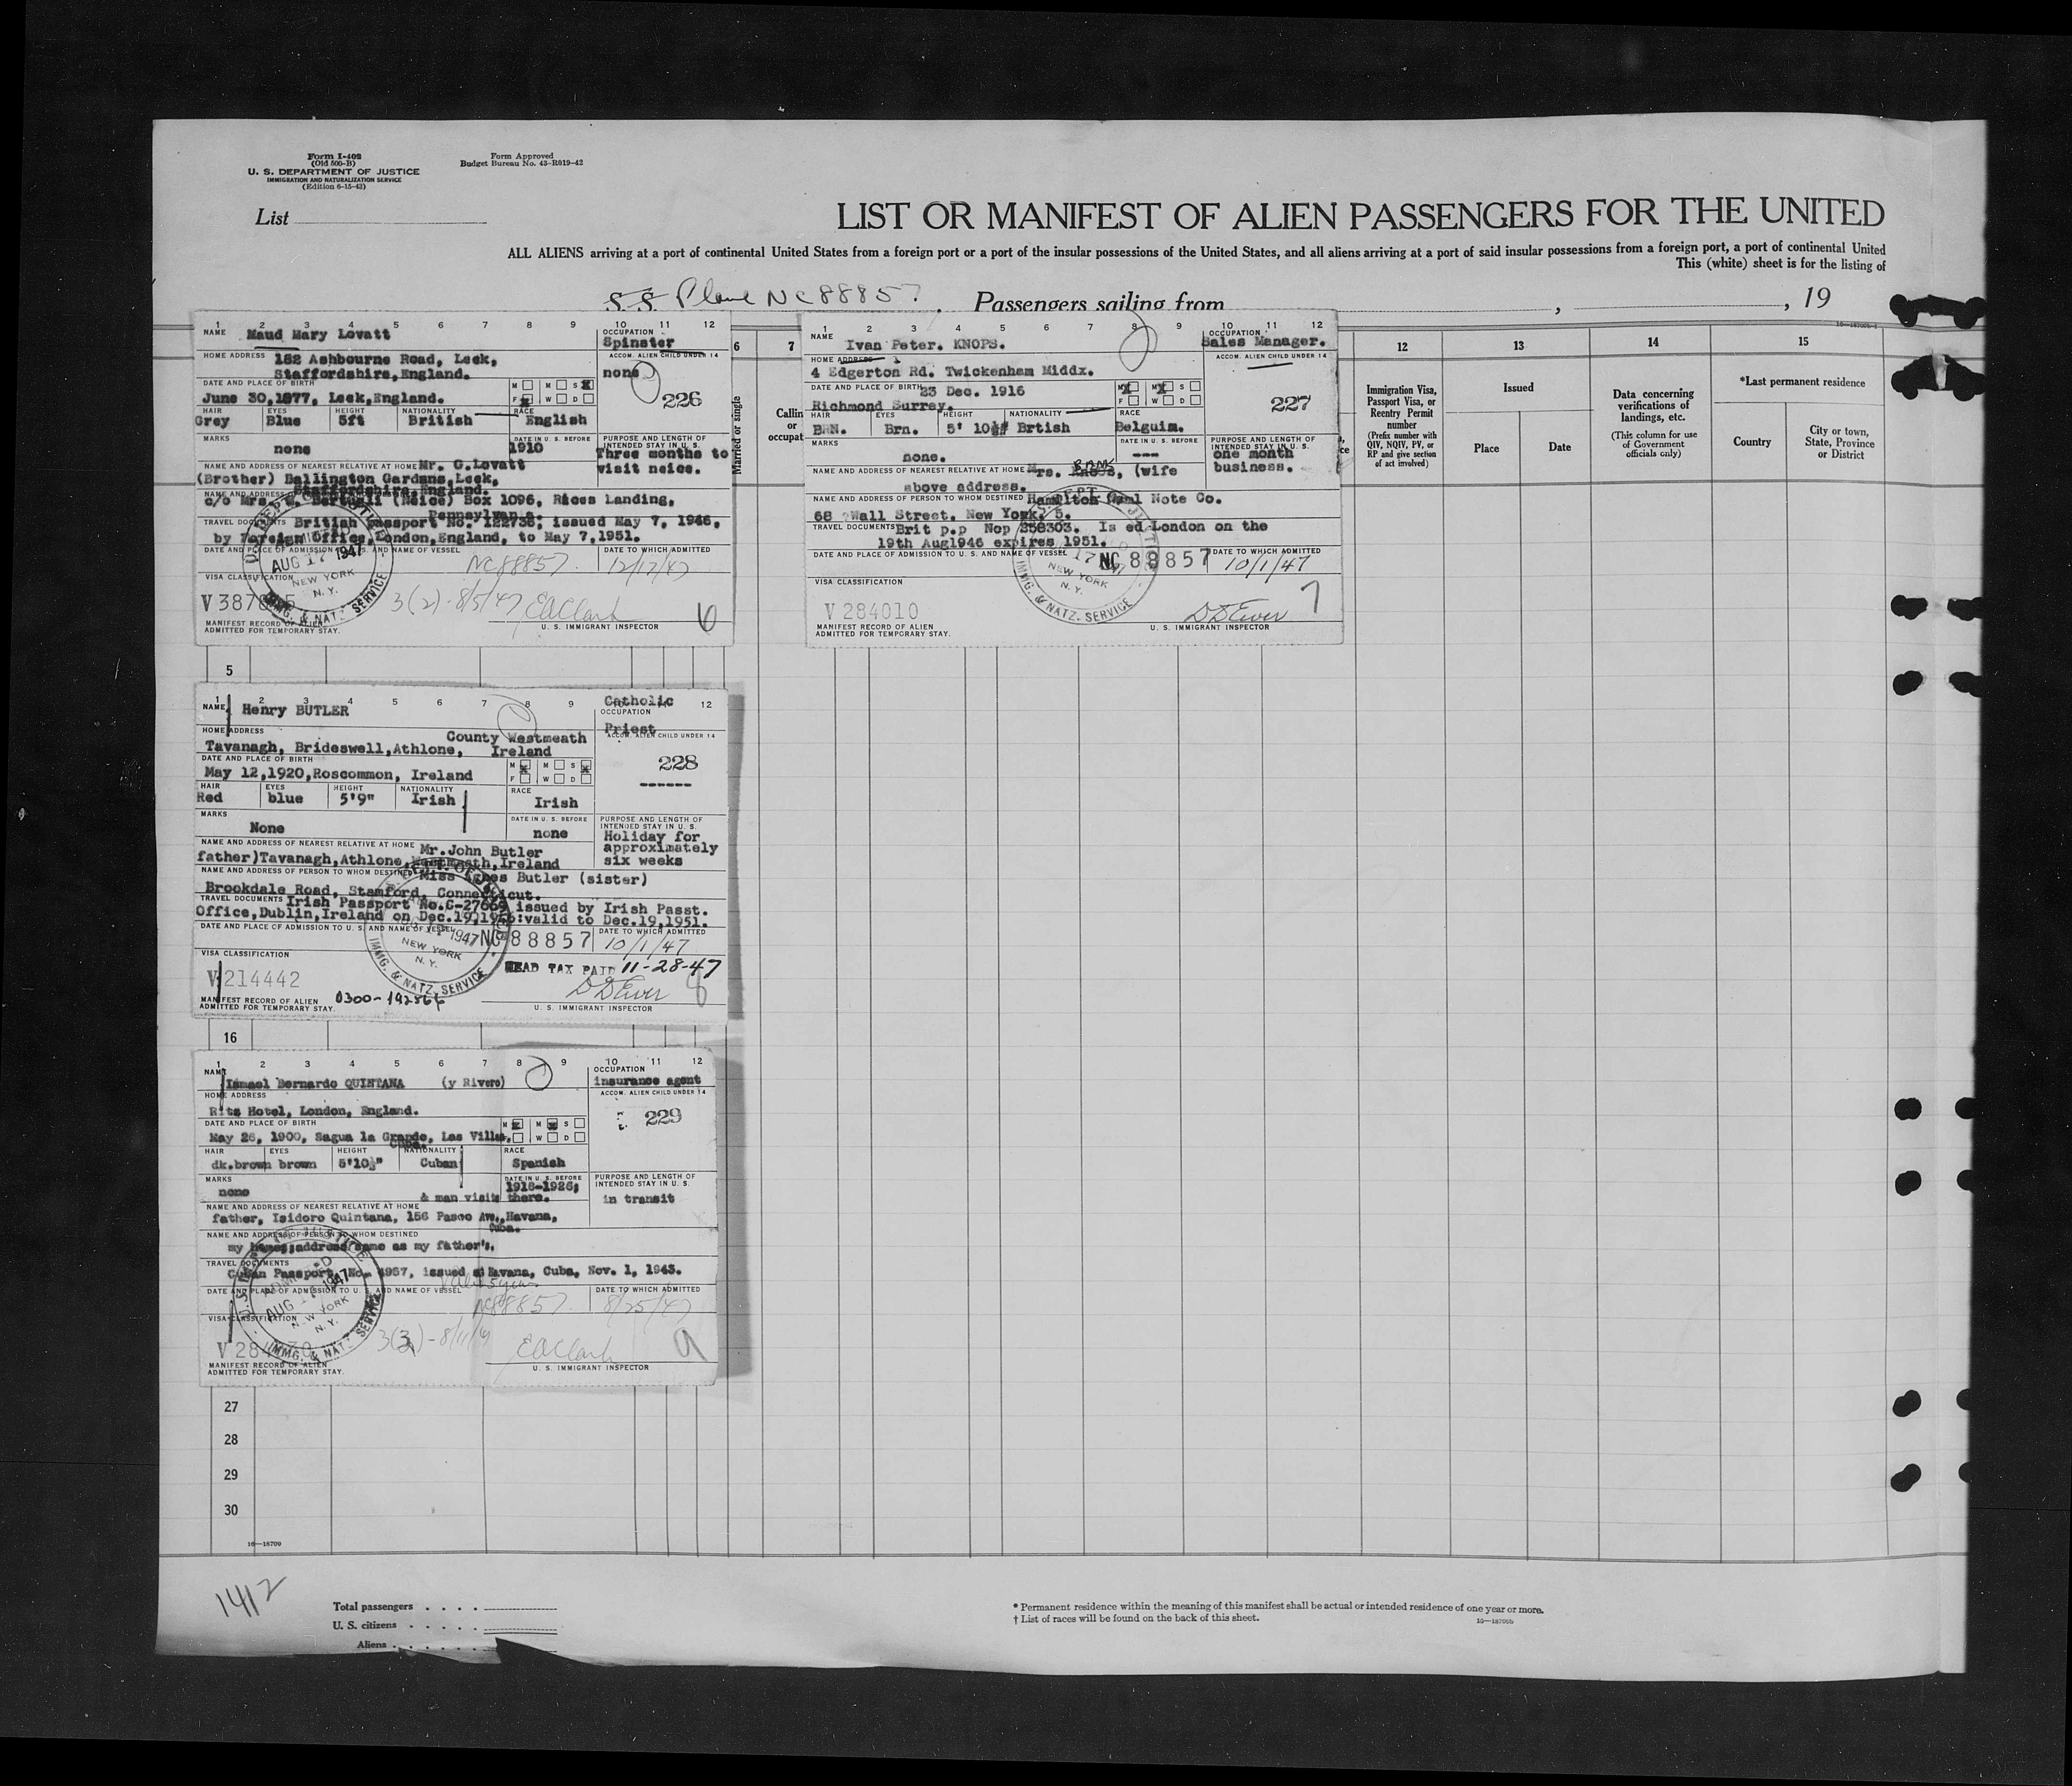 Form I-402
(Old 500-B)
U. S. DEPARTMENT OF JUSTICE
IMMIGRATION AND NATURALIZATION SERVICE
(Edition 6-15-43)
Form Approved
Budget Bureau No. 43-R019-42
List
LIST OR MANIFEST OF ALIEN PASSENGERS FOR THE UNITED
ALL ALIENS arriving at a port of continental United States from a foreign port or a port of the insular possessions of the United States, and all aliens arriving at a port of said insular possessions from a foreign port, a port of continental United
This (white) sheet is for the listing of
S.S. Plane NC88857. Passengers sailing from , , 19
1 2 3 4 5 6 7 8 9 10 11 12
NAME Maud Mary Lovatt
OCCUPATION
Spinster
HOME ADDRESS 182 Ashbourne Road, Leek,
Staffordshire, England.
ACCOM. ALIEN CHILD UNDER 14
none
226
DATE AND PLACE OF BIRTH
June 30,1877, Leek,England.
M M S
F W D
HAIR EYES HEIGHT NATIONALITY RACE
Grey Blue 5ft British English
MARKS
none
DATE IN U. S. BEFORE
1910
PURPOSE AND LENGTH OF
INTENDED STAY IN U. S.
Three months to
visit neice.
NAME AND ADDRESS OF NEAREST RELATIVE AT HOME Mr. G.Lovatt
(Brother) Ballington Gardens,Leek,
Staffordshire,England.
NAME AND ADDRESS
c/o Mrs. (Neice) Box 1096, Rices Landing,
Pennsylvania.
TRAVEL DOCUMENTS British passport No. 122736, issued May 7, 1946,
by Foreign Office,London,England, to May 7,1951.
DATE AND PLACE OF ADMISSION TO U. S. AND NAME OF VESSEL
NC88857.
DATE TO WHICH ADMITTED
12/17/47
AUG 17 1947
NEW YORK
N. Y.
IMMG. & NATZ. SERVICE
VISA CLASSIFICATION
3(2)-8/5/47 EAClark
6
MANIFEST RECORD OF ALIEN
ADMITTED FOR TEMPORARY STAY.
U. S. IMMIGRANT INSPECTOR
1 2 3 4 5 6 7 8 9 10 11 12
NAME Ivan Peter. KNOPS.
OCCUPATION
Sales Manager.
HOME ADDRESS
4 Edgerton Rd. Twickenham Middx.
ACCOM. ALIEN CHILD UNDER 14
227
DATE AND PLACE OF BIRTH 23 Dec. 1916
Richmond Surrey.
M M S
F W D
HAIR EYES HEIGHT NATIONALITY RACE
BRN. Brn. 5' 10½ Brtish Belguim.
MARKS
none.
DATE IN U. S. BEFORE
---
PURPOSE AND LENGTH OF
INTENDED STAY IN U. S.
one month
business.
NAME AND ADDRESS OF NEAREST RELATIVE AT HOME Mrs. (wife
above address.
NAME AND ADDRESS OF PERSON TO WHOM DESTINED Hamilton Note Co.
68 Wall Street. New York. 5.
TRAVEL DOCUMENTS Brit p.p Nop 258303. Is ed London on the
19th Aug1946 expires 1951.
DATE AND PLACE OF ADMISSION TO U. S. AND NAME OF VESSEL
NC 88857
DATE TO WHICH ADMITTED
10/1/47
NEW YORK
N. Y.
IMMG. & NATZ. SERVICE
VISA CLASSIFICATION
V 284010
7
MANIFEST RECORD OF ALIEN
ADMITTED FOR TEMPORARY STAY.
U. S. IMMIGRANT INSPECTOR
6 7 12 13 14 15
Married or single
Immigration Visa,
Passport Visa, or
Reentry Permit
number
(Prefix number with
QIV, NQIV, PV, or
RP and give section
of act involved)
Issued
Place Date
Data concerning
verifications of
landings, etc.
(This column for use
of Government
officials only)
*Last permanent residence
Country
City or town,
State, Province
or District
5
1 2 3 4 5 6 7 8 9 12
NAME Henry BUTLER
Catholic
OCCUPATION
Priest
HOME ADDRESS County Westmeath
Tavanagh, Brideswell,Athlone, Ireland
ACCOM. ALIEN CHILD UNDER 14
228
------
DATE AND PLACE OF BIRTH
May 12,1920,Roscommon, Ireland
M M S
F W D
HAIR EYES HEIGHT NATIONALITY RACE
Red blue 5'9" Irish Irish
MARKS
None
DATE IN U. S. BEFORE
none
PURPOSE AND LENGTH OF
INTENDED STAY IN U. S.
Holiday for
approximately
six weeks
NAME AND ADDRESS OF NEAREST RELATIVE AT HOME Mr.John Butler
father)Tavanagh,Athlone,Westmeath,Ireland
NAME AND ADDRESS OF PERSON TO WHOM DESTINED Miss Agnes Butler (sister)
Brookdale Road, Stamford, Connecticut.
TRAVEL DOCUMENTS Irish Passport No.C-27669 issued by Irish Passt.
Office,Dublin,Ireland on Dec.19,1946:valid to Dec.19,1951.
DATE AND PLACE OF ADMISSION TO U. S. AND NAME OF VESSEL
1947 NC 88857
DATE TO WHICH ADMITTED
10/1/47
NEW YORK
N. Y.
IMMG. & NATZ. SERVICE
VISA CLASSIFICATION
HEAD TAX PAID 11-28-47
V 214442
8
MANIFEST RECORD OF ALIEN
ADMITTED FOR TEMPORARY STAY.
U. S. IMMIGRANT INSPECTOR
16
1 2 3 4 5 6 7 8 9 10 11 12
NAME Ismael Bernardo QUINTANA (y Rivero)
OCCUPATION
insurance agent
HOME ADDRESS
Ritz Hotel, London, England.
ACCOM. ALIEN CHILD UNDER 14
229
DATE AND PLACE OF BIRTH
May 26, 1900, Sagua la Grande, Las Villas,
Cuba.
M M S
W D
HAIR EYES HEIGHT NATIONALITY RACE
dk.brown brown 5'10½" Cuban Spanish
MARKS
none
DATE IN U. S. BEFORE
1918-1926;
& man visits there.
PURPOSE AND LENGTH OF
INTENDED STAY IN U. S.
in transit
NAME AND ADDRESS OF NEAREST RELATIVE AT HOME
father, Isidoro Quintana, 156 Paseo Ave,Havana,
Cuba.
NAME AND ADDRESS OF PERSON TO WHOM DESTINED
my home;address same as my father's.
TRAVEL DOCUMENTS
Cuban Passport, No. 4957, issued at Havana, Cuba, Nov. 1, 1943.
DATE AND PLACE OF ADMISSION TO U. S. AND NAME OF VESSEL
NC88857.
DATE TO WHICH ADMITTED
8/25/47
AUG 1947
NEW YORK
N. Y.
VISA CLASSIFICATION
EAClark
9
MANIFEST RECORD OF ALIEN
ADMITTED FOR TEMPORARY STAY.
U. S. IMMIGRANT INSPECTOR
27
28
29
30
16—18700
1412
Total passengers
U. S. citizens
Aliens
* Permanent residence within the meaning of this manifest shall be actual or intended residence of one year or more.
† List of races will be found on the back of this sheet.